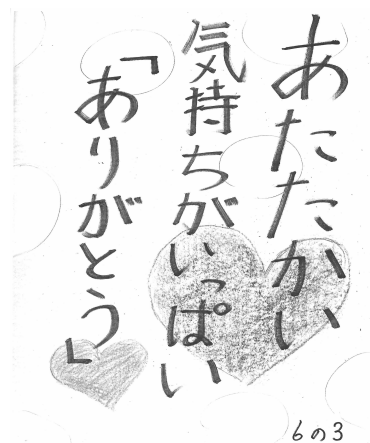 あたたかい
気持ちがいっぱい
「ありがとう」
6の3